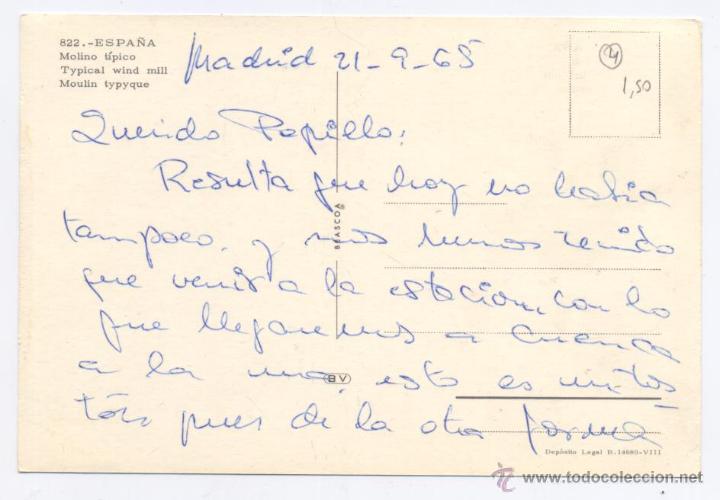 822.-ESPAÑA
Molino típico
Typical wind mill
Moulin typyque
Madrid 21-9-65
4
1,50
Querido Papillo:
Resulta que hoy no había
tampoco, y nos hemos tenido
que venir a la estación, con lo
que llegaremos a Cuenca
a la una, esto es
pues de la otra forma
BEASCOA
BV
Depósito Legal B. 14680-VIII
todocoleccion.net